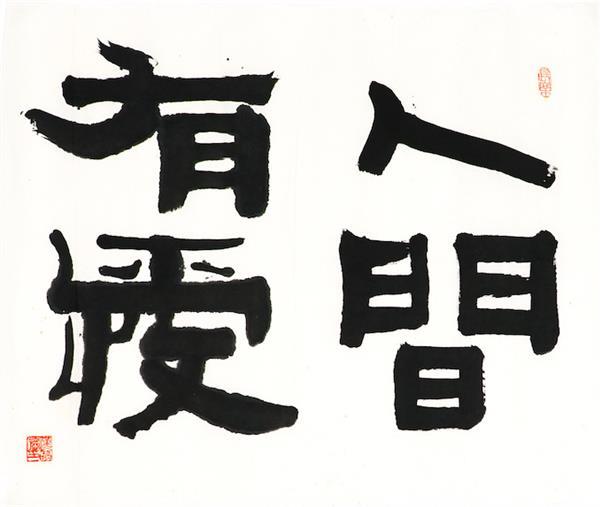 人間
有愛